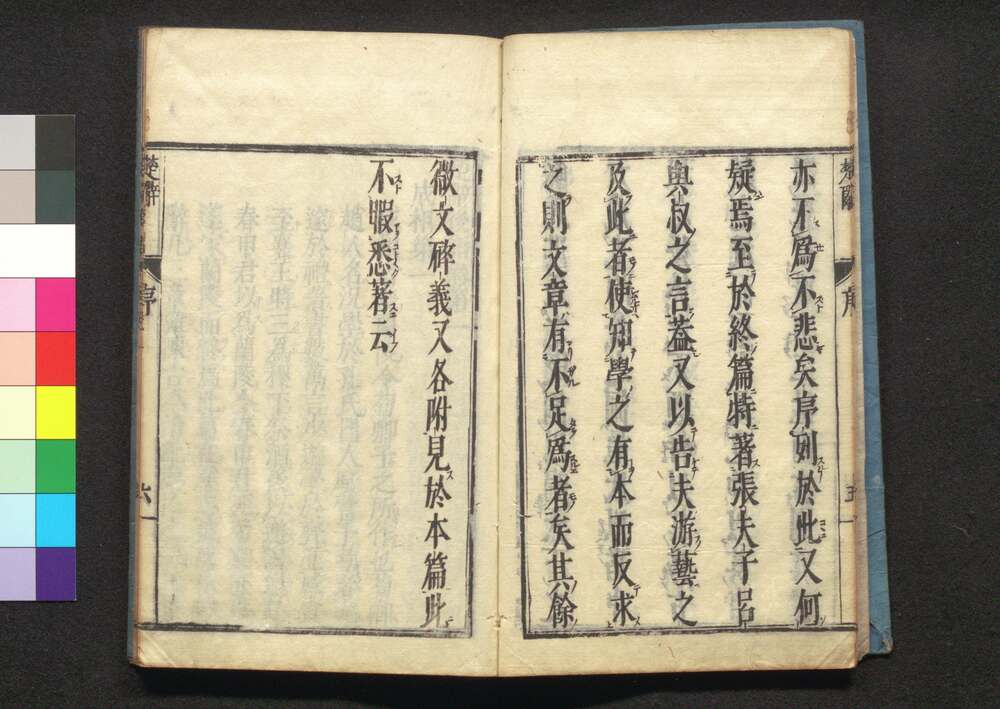 亦不爲不悲矣序則於此又何
疑焉至於終篇特著張夫子呂
與叔之言蓋又以告夫游藝之
及此者使知學之有本而反求
之則文章有不足爲者矣其餘
微文碎義又各附見於本篇此
不暇悉著云
楚辭
序
六